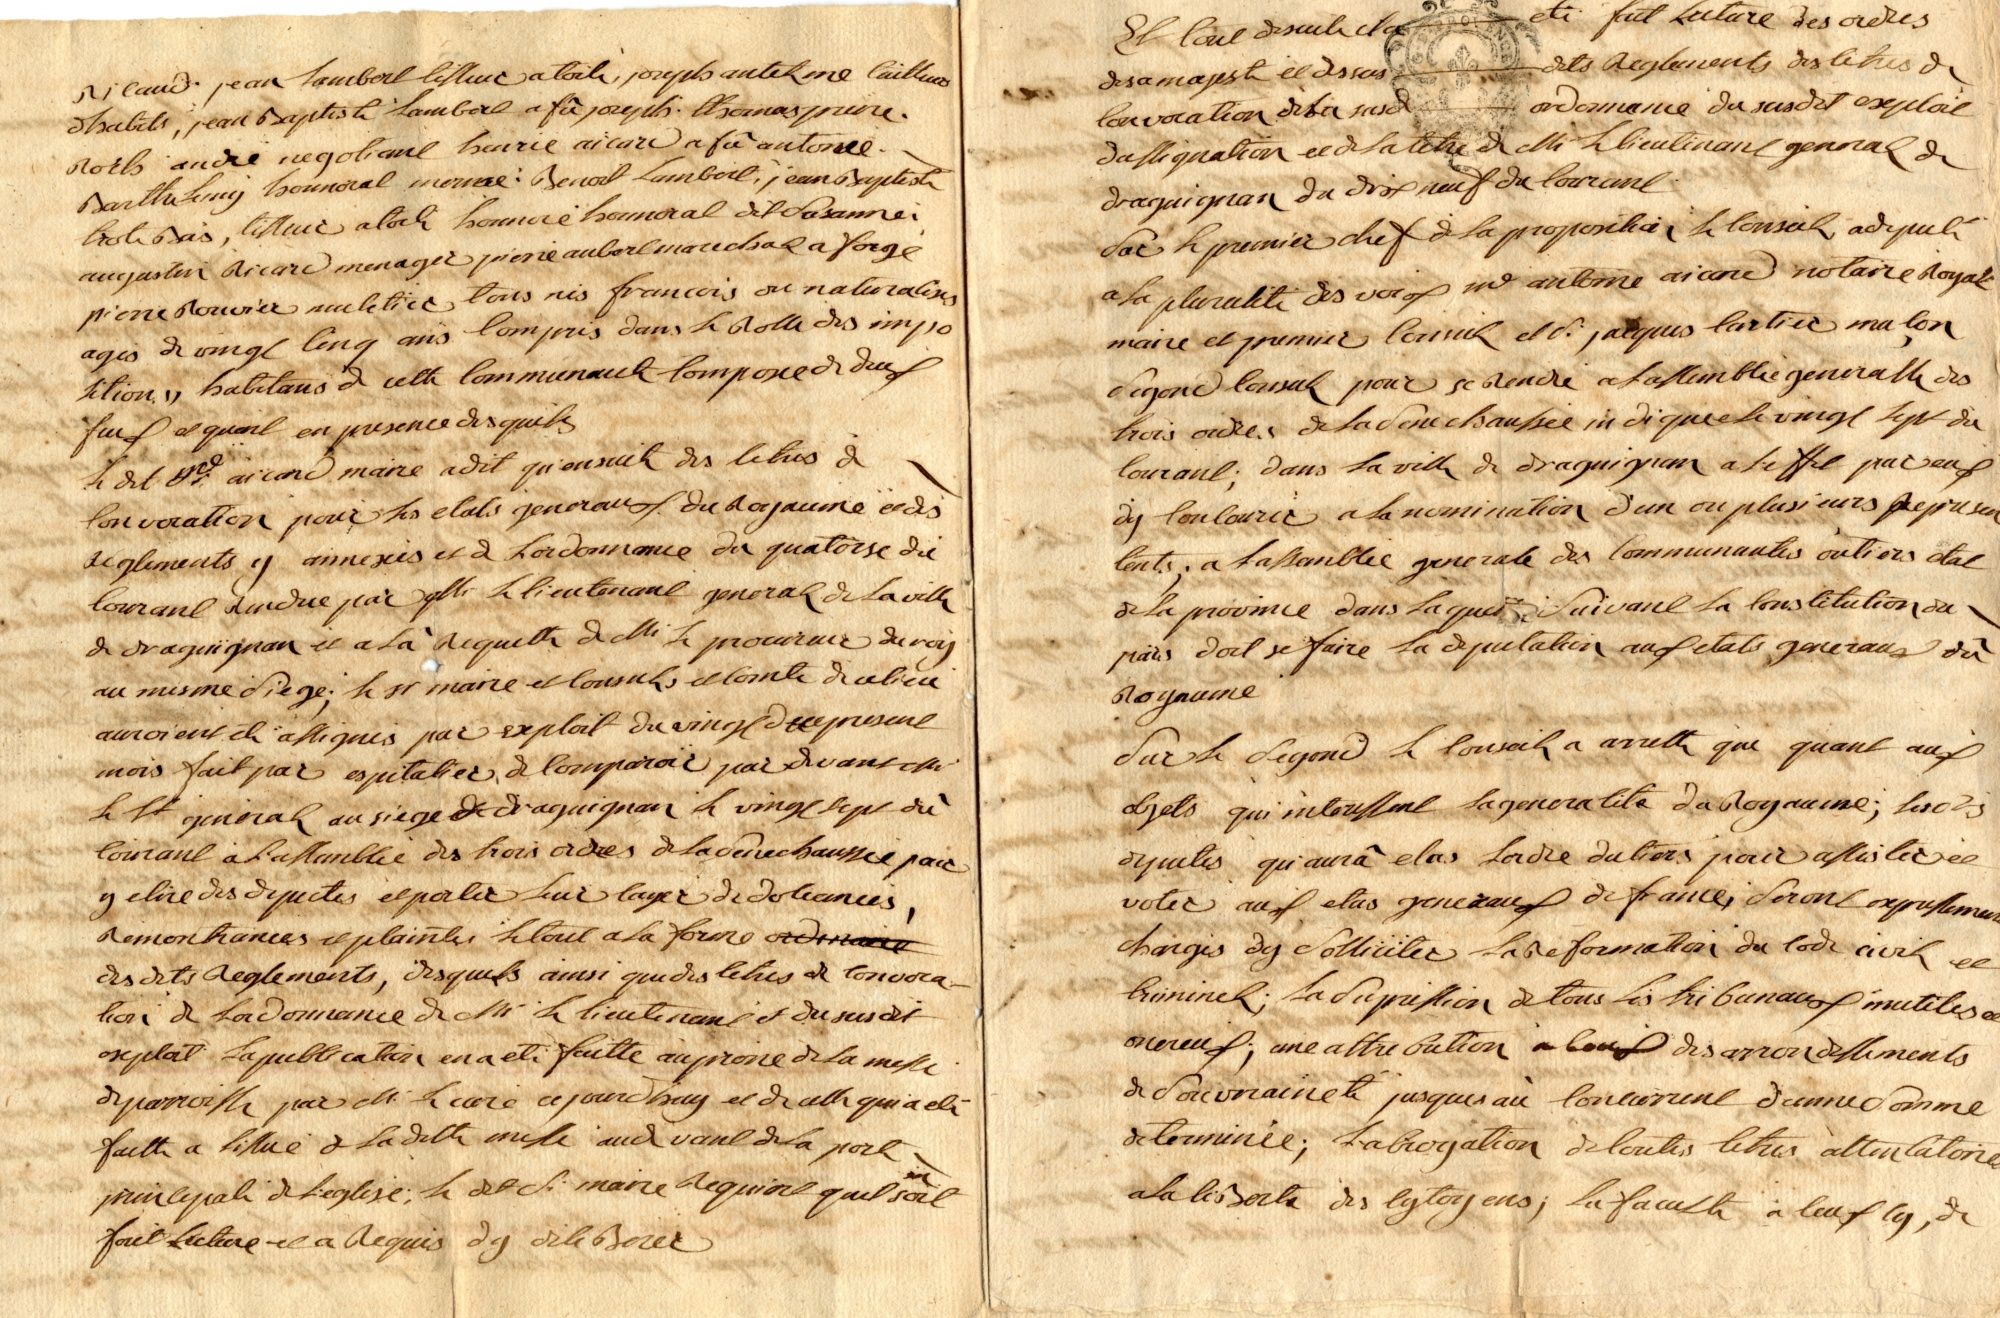 Ricaud. jean Lambert tisseur a toile, joseph antelme tailleur
dhabits, jean Baptiste Lambert a fû joseph. thomas pierre.
Roch andré negotiant henrie aicard a fû antoine.
Barthelemy honnorat Benoit Lambert, jean Baptiste
tisseur a toile honnoré honnorat dit Susanne,
augustin Ricard menager pierre aubert marechal a forge
pierre Rouvier muletier tous nés francois ou naturalisés
ages de vingt cinq ans compris dans le Rolle des impo
sitions, habitans de cette communauté composée de
feux et quoit en presence desquels
Le dit me aicard maire a dit qu'ensuite des letres de
convocation pour les etats generaux du Royaume et des
Reglements y annexés et de Lordonnance du quatorse du
courant Rendue par Mr Le lieutenant general de La ville
de draguignan et a La Requette de Mr Le procureur du roy
au mesme siege; le sr maire et consuls et comte de ce lieu
auroient eté assignes par exploit du vingt du present
mois fait par espitalier, de comparoir par devant Mr
le Lt general au siege de draguignan le vingt sept du
courant a Lassamblée des trois ordres de La senechaussée pour
y elire des deputes et porter leur cayer de doleances,
Remontrances et plaintes Le tout a la forme ordinaire
des dits Reglements, desquels ainsi que des letres de convoca-
tion de Lordonnance de Mr Le lieutenant et du susdit
exploit La publication en a eté faitte au prone de La messe
de parroisse par Mr Le curé ce jourdhuy et de celle qui a eté
faitte a lissue de La ditte messe au devant de La porte
principale de Leglise; le dit Sr maire Requiert quil en soit
fait Lecture et a Requis dy deliberer
Et tout desuite eté fait Lecture des ordres
de sa majesté et des sus dits Reglements des letres de
convocation de La susd ordonnance du susdit exploit
dassignation et de La letre de Mr Le lieutenant general de
draguignan du dix neuf du courant.
Sur le premier chef de La proposition le Conseil a deputé
a La pluralité des voix me antoine aicard notaire Royal
maire et premier Consul et Sr jacques Cartier maçon
Segond Consul pour se Rendre a Lassemblée generalle des
trois ordres de La Senechaussée indiquee le vingt sept du
courant; dans La ville de draguignan a Leffet par eux
dy concourir a La nomination d'un ou plusieurs Represen
tents, a Lassamblée generale des Communautes ou tiers etat
de La province dans Laquelle Suivant La Constitution du
païs doit se faire La deputation aux etats generaux du
Royaume
Sur le Segond le Conseil a arretté que quant aux
objets qui interessent La generalité du Royaume; les dits
deputes qu'aura elus Lordre du tiers pour assister et
voter aux etas generaux de france; Seront expressement
charges dy Solliciter La Reformation du Code civil et
Criminel; La Supression de tous Les tribunaux inutiles et
onereux; une attribution a ceux des arrondissements
de Souveraineté jusques au concurrent dunne Somme
determinée; Labrogation de toutes letres attentatoires
a La liberté des Cytoyens; La faculté a ceux cy, de